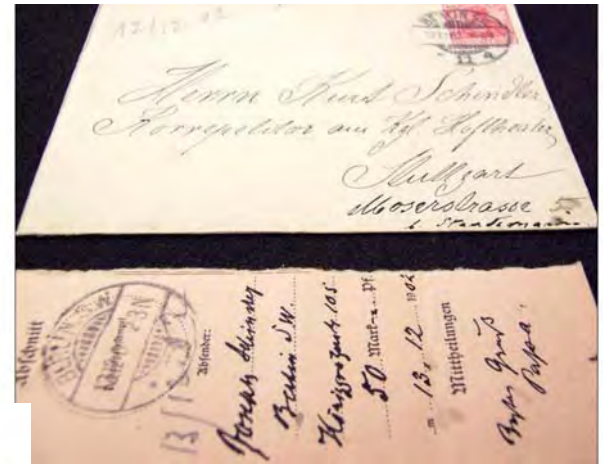 12/12. 02
BERLIN
11 a
Herrn Kurt Schindler
Korrepetitor am Kgl Hoftheater
Stuttgart
Moserstrasse 5
b.
Abschnitt
BERLIN S.W.
2-3N
13/12
Absender:
Schindler
Berlin SW.
Königgrätz 105
50 Mark Pf.
13. 12 1902
Mittheilungen
Besten Gruß
Papa.